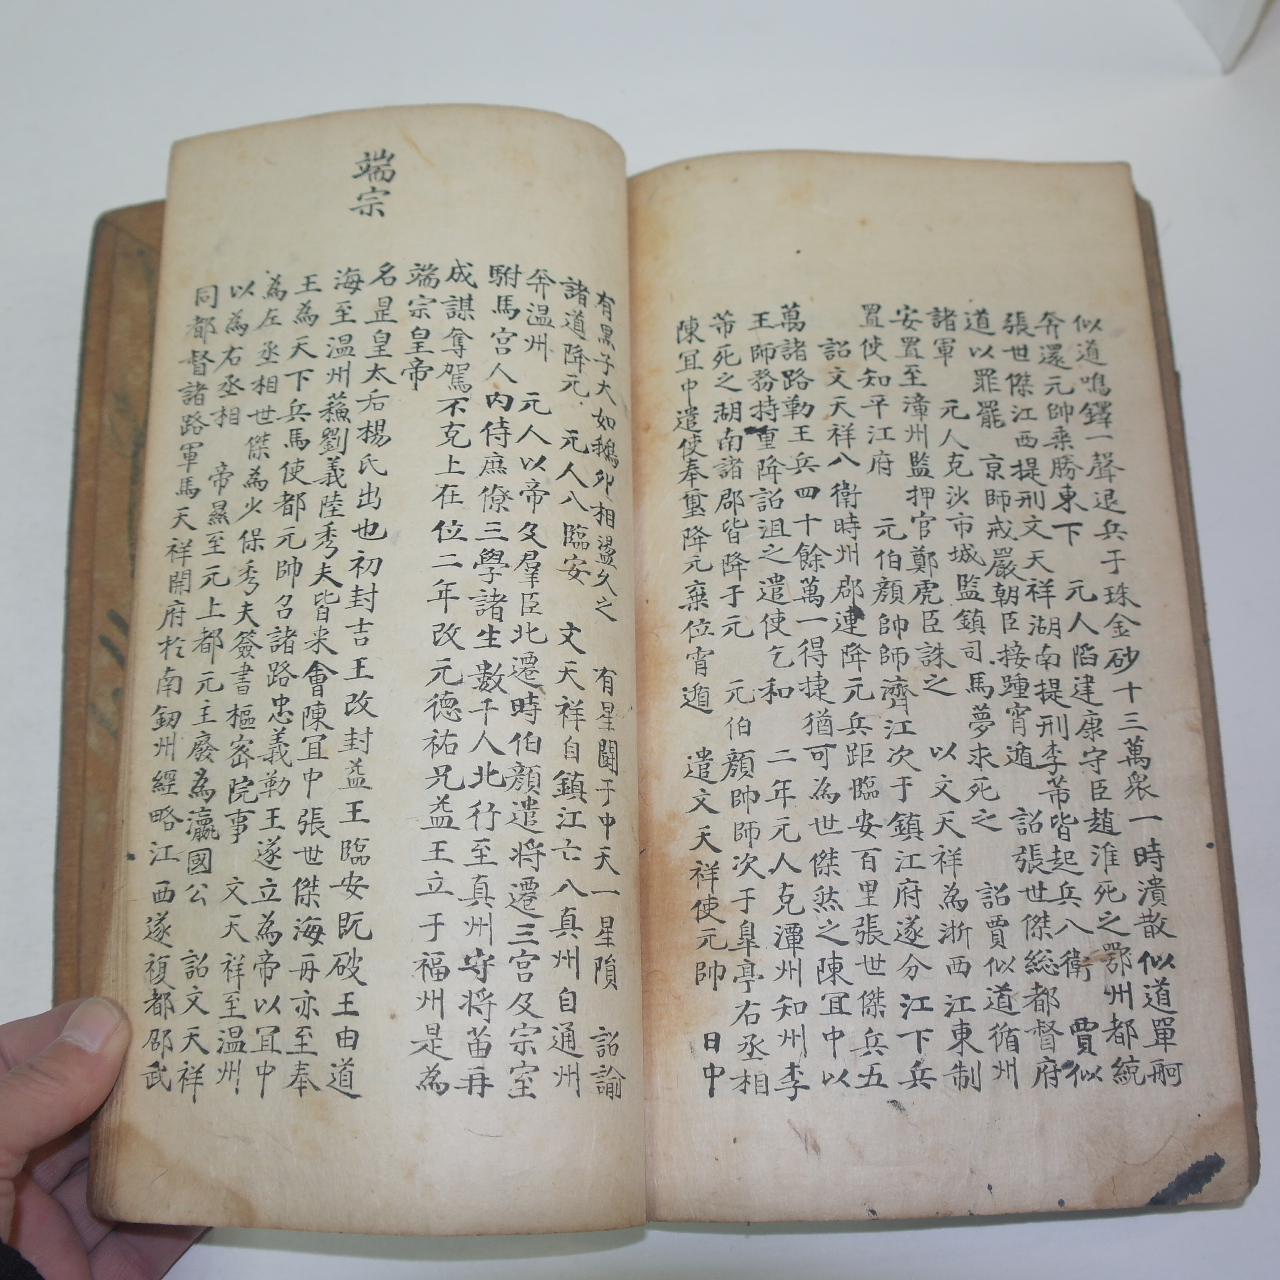 似道鳴鐸一聲退兵于珠金砂十三萬衆一時潰散似道單舸
奔還元帥乘勝東下 元人陷建康守臣趙淮死之鄂州都統
張世傑江西提刑文天祥湖南提刑李芾皆起兵入衛 賈似
道以罪罷 京師戒嚴朝臣接踵宵遁 詔張世傑総都督府
諸軍 元人克沙市城監鎮司馬夢求死之 詔賈似道循州
安置至漳州監押官鄭虎臣誅之 以文天祥為浙西江東制
置使知平江府 元伯顏帥師濟江次于鎮江府遂分江下兵
詔文天祥入衛時州郡連降元兵距臨安百里張世傑兵五
萬諸路勤王兵四十餘萬一得捷猶可為世傑然之陳宜中以
王師務持重降詔沮之遣使乞和 二年元人克潭州知州李
芾死之湖南諸郡皆降于元 元伯顏帥師次于臯亭右丞相
陳宜中遣使奉璽降元棄位宵遁 遣文天祥使元帥 日中
有黑子大如鵝卵相盪久之 有星鬪于中天一星隕 詔諭
諸道降元 元人入臨安 文天祥自鎮江亡入真州自通州
奔温州 元人以帝及羣臣北遷時伯顏遣将遷三宮及宗室
駙馬宮人内侍庶僚三學諸生數千人北行至真州守将苗再
成謀奪駕不克上在位二年改元德祐兄益王立于福州是為
端宗皇帝
端宗
名昰皇太后楊氏出也初封吉王改封益王臨安既破王由道
海至温州蘓劉義陸秀夫皆来會陳宜中張世傑海舟亦至奉
王為天下兵馬使都元帥召諸路忠義勤王遂立為帝以宜中
為左丞相世傑為少保秀夫簽書樞密院事 文天祥至温州
以為右丞相 帝㬎至元上都元主廢為瀛國公 詔文天祥
同都督諸路軍馬天祥開府於南釼州經略江西遂複都邵武